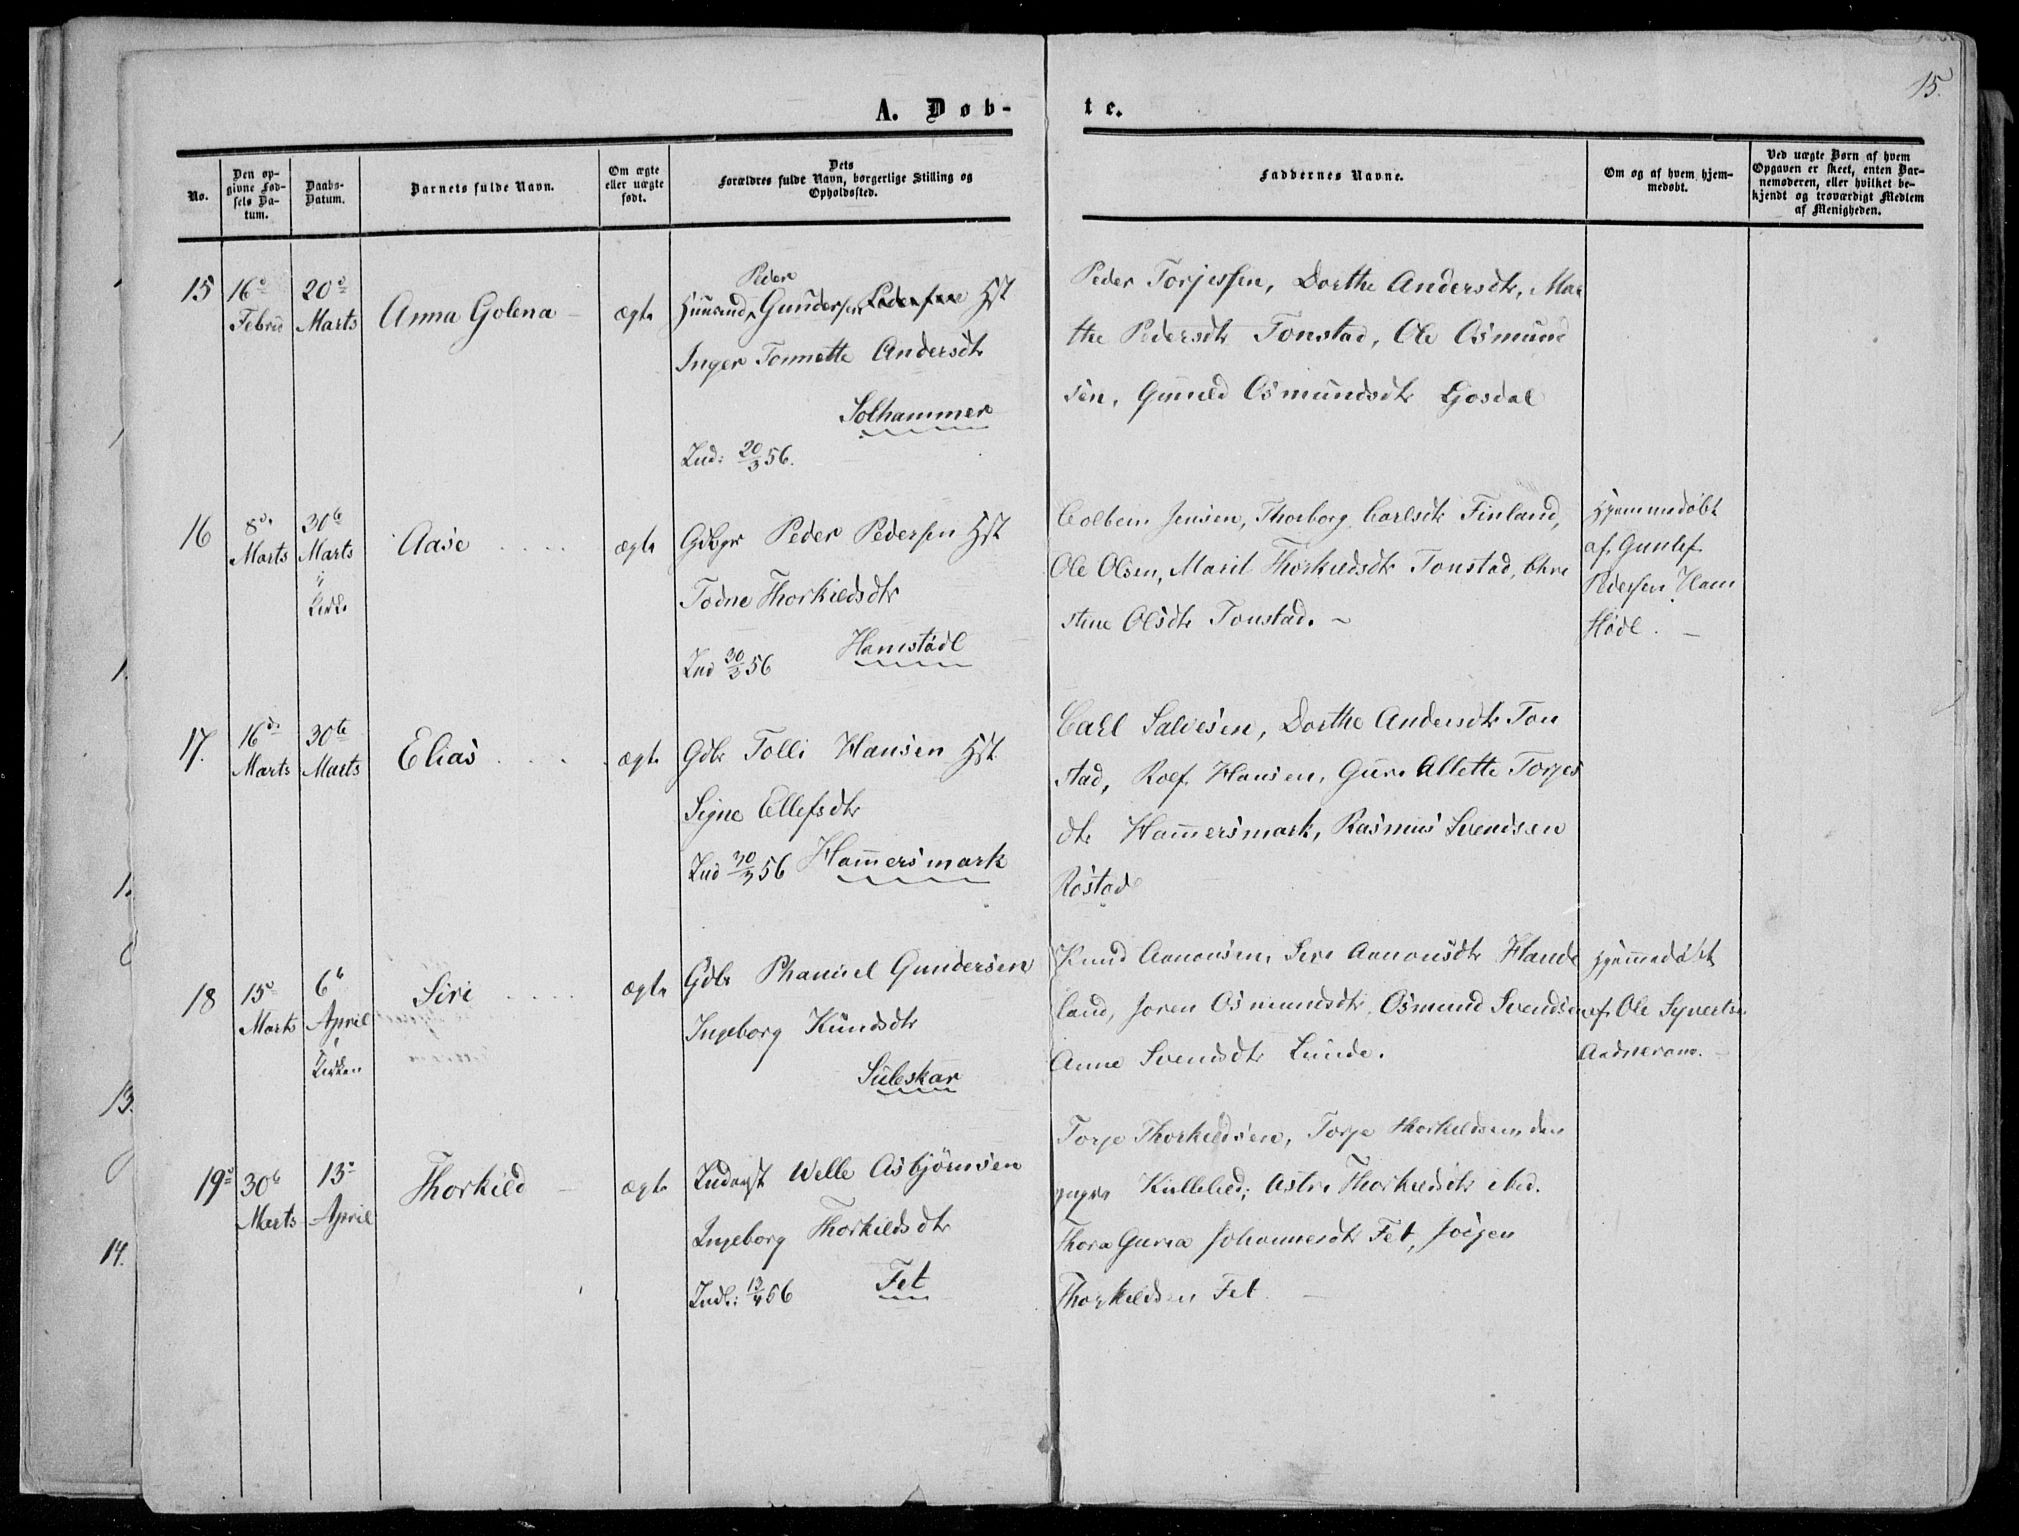 15.
A. Døb-
te.
No.
Den op-
givne Fød-
sels Da-
tum.
Daabs-
Datum.
Barnets fulde Navn.
Om ægte
eller uægte
født.
Dets
Forældres fulde Navn, borgerlige Stilling og
Opholdssted.
Faddernes Navne.
Om og af hvem hjem-
medøbt.
Ved uægte Børn af hvem
Opgaven er skeet, enten Bar-
nemoderen, eller hvilket be-
kjendt og troværdigt Medlem
af Menigheden.
15
16d
Febru
20d
Marts
Anna Golena
ægte
Peder
Huusmd Gundersen Pedersen Hst
Inger Tonnette Andersdtr
Solhammer
Ind: 20/3 56.
Peder Torjessen, Dorthe Andersdtr, Mar
the Pedersdtr Tonstad, Ole Osmund
sen, Gunild Osmundsdtr Josdal
16
8d
Marts
30te
Marts
i
Kirke
Aase
ægte
Gdbgr Peder Pedersen Hst
Todne Thorkildsdtr
Hamstødl
Ind 30/3 56
Colbein Jensen, Thorborg Carlsdtr Finland,
Ole Olsen, Marit Thorkildsdtr Tonstad, Chri
stine Olsdtr Tonstad.
Hjemmedøbt
af Gunlef
Pedersen Ham
stødl.
17.
16d
Marts
30te
Marts
Elias
ægte
Gdbr Tolli Hansen Hst
Signe Ellefsdtr
Ind 30/3 56 Hammersmark
Carl Salvesen, Dorthe Andersdtr Ton
stad, Rolf Hansen, Guri Allette Torjes
dtr Hammersmark, Rasmus Svendsen
Rostad
18
15d
Marts
6te
April
i
Kirken
Siri
ægte
Gdbr Phanuel Gundersen
Ingeborg Knudsdtr
Suleskar
Knud Aanonsen, Siri Aanonsdtr Hande
land, Joren Osmundsdtr, Osmund Svendsen
Anne Svendsdtr Lunde.
Hjemmedøbt
af Ole Syverts.
Aadneram.
19
30te
Marts
13d
April
Thorkild
ægte
Inderst Welle Asbjörnsen
Ingeborg Thorkildsdtr
Indl: 13/4 56 Fet
Torje Thorkildsen, Torje Thorkildsen den
yngre Kvilleled; Astri Thorkildsdtr ibid.
Thora Guria Johannesdtr Fet, Joëgen
Thorkildsen Fet.
1.
13.
14.